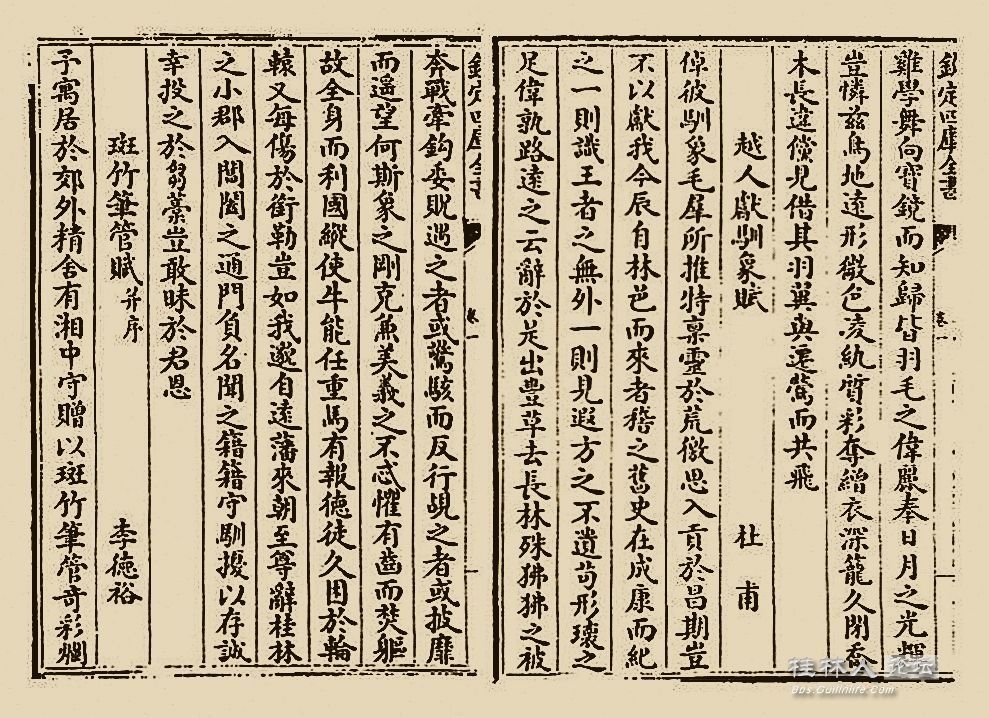 欽定四庫全書
卷一
難學舞向寶鏡而知歸皆羽毛之偉麗奉日月之光輝
豈憐茲鳥地遠形微色凌紈質彩奪繒衣深籠久閉喬
木長違儻見借其羽翼與遷鶯而共飛
越人獻馴象賦 杜甫
倬彼馴象毛犀所推特稟靈於荒徼思入貢於昌期豈
不以獻我今辰自林邑而來者稽之舊史在成康而紀
之一則識王者之無外一則見遐方之不遺苟形瓌之
足偉孰路遠之云辭於是出豐草去長林殊狒狒之被
欽定四庫全書
卷一
奔戰牽鈎委貺遇之者或驚駭而反行覘之者或披靡
而遥望何斯象之剛克兼美義之不忒懼有齒而焚軀
故全身而利國縱使牛能任重馬有報德徒久困於輪
轅又每傷於銜勒豈如我邀自遠藩來朝至尊辭桂林
之小郡入閶闔之通門負名聞之籍籍守馴擾以存誠
幸投之於芻藁豈敢昧於君恩
斑竹筆管賦并序 李德裕
予寓居於郊外精舍有湘中守贈以斑竹筆管奇彩爛
桂林人論坛
bbs.Guilinlife.com